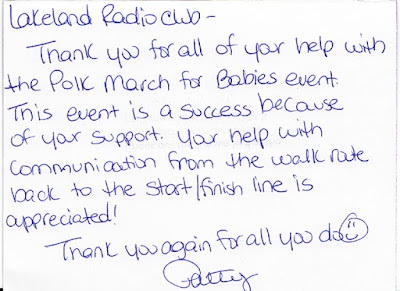 Lakeland Radio Club -
Thank you for all of your help with
the Polk March for Babies event.
This event is a success because
of your support. Your help with
communication from the walk rate
back to the start/finish line is
appreciated!
Thank you again for all you do
Patty